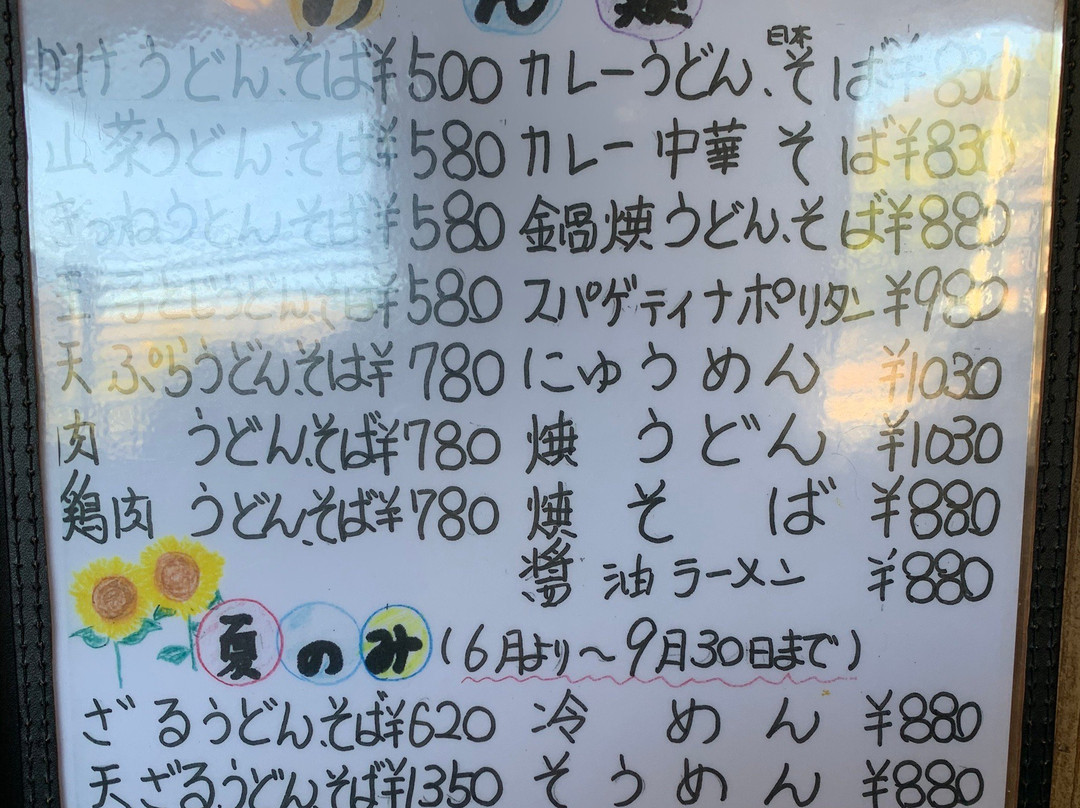 めん類
かけうどん、そば¥500
山菜うどん、そば¥580
きつねうどん、そば¥580
玉子とじうどん、そば¥580
天ぷらうどん、そば¥780
肉うどん、そば¥780
鶏肉うどん、そば¥780
カレーうどん、日本そば¥830
カレー中華そば¥830
鍋焼うどん、そば¥880
スパゲティナポリタン¥980
にゅうめん¥1030
焼うどん¥1030
焼そば¥880
醤油ラーメン¥880
夏のみ(6月より~9月30日まで)
ざるうどん、そば¥620
天ざるうどん、そば¥1350
冷めん¥880
そうめん¥880